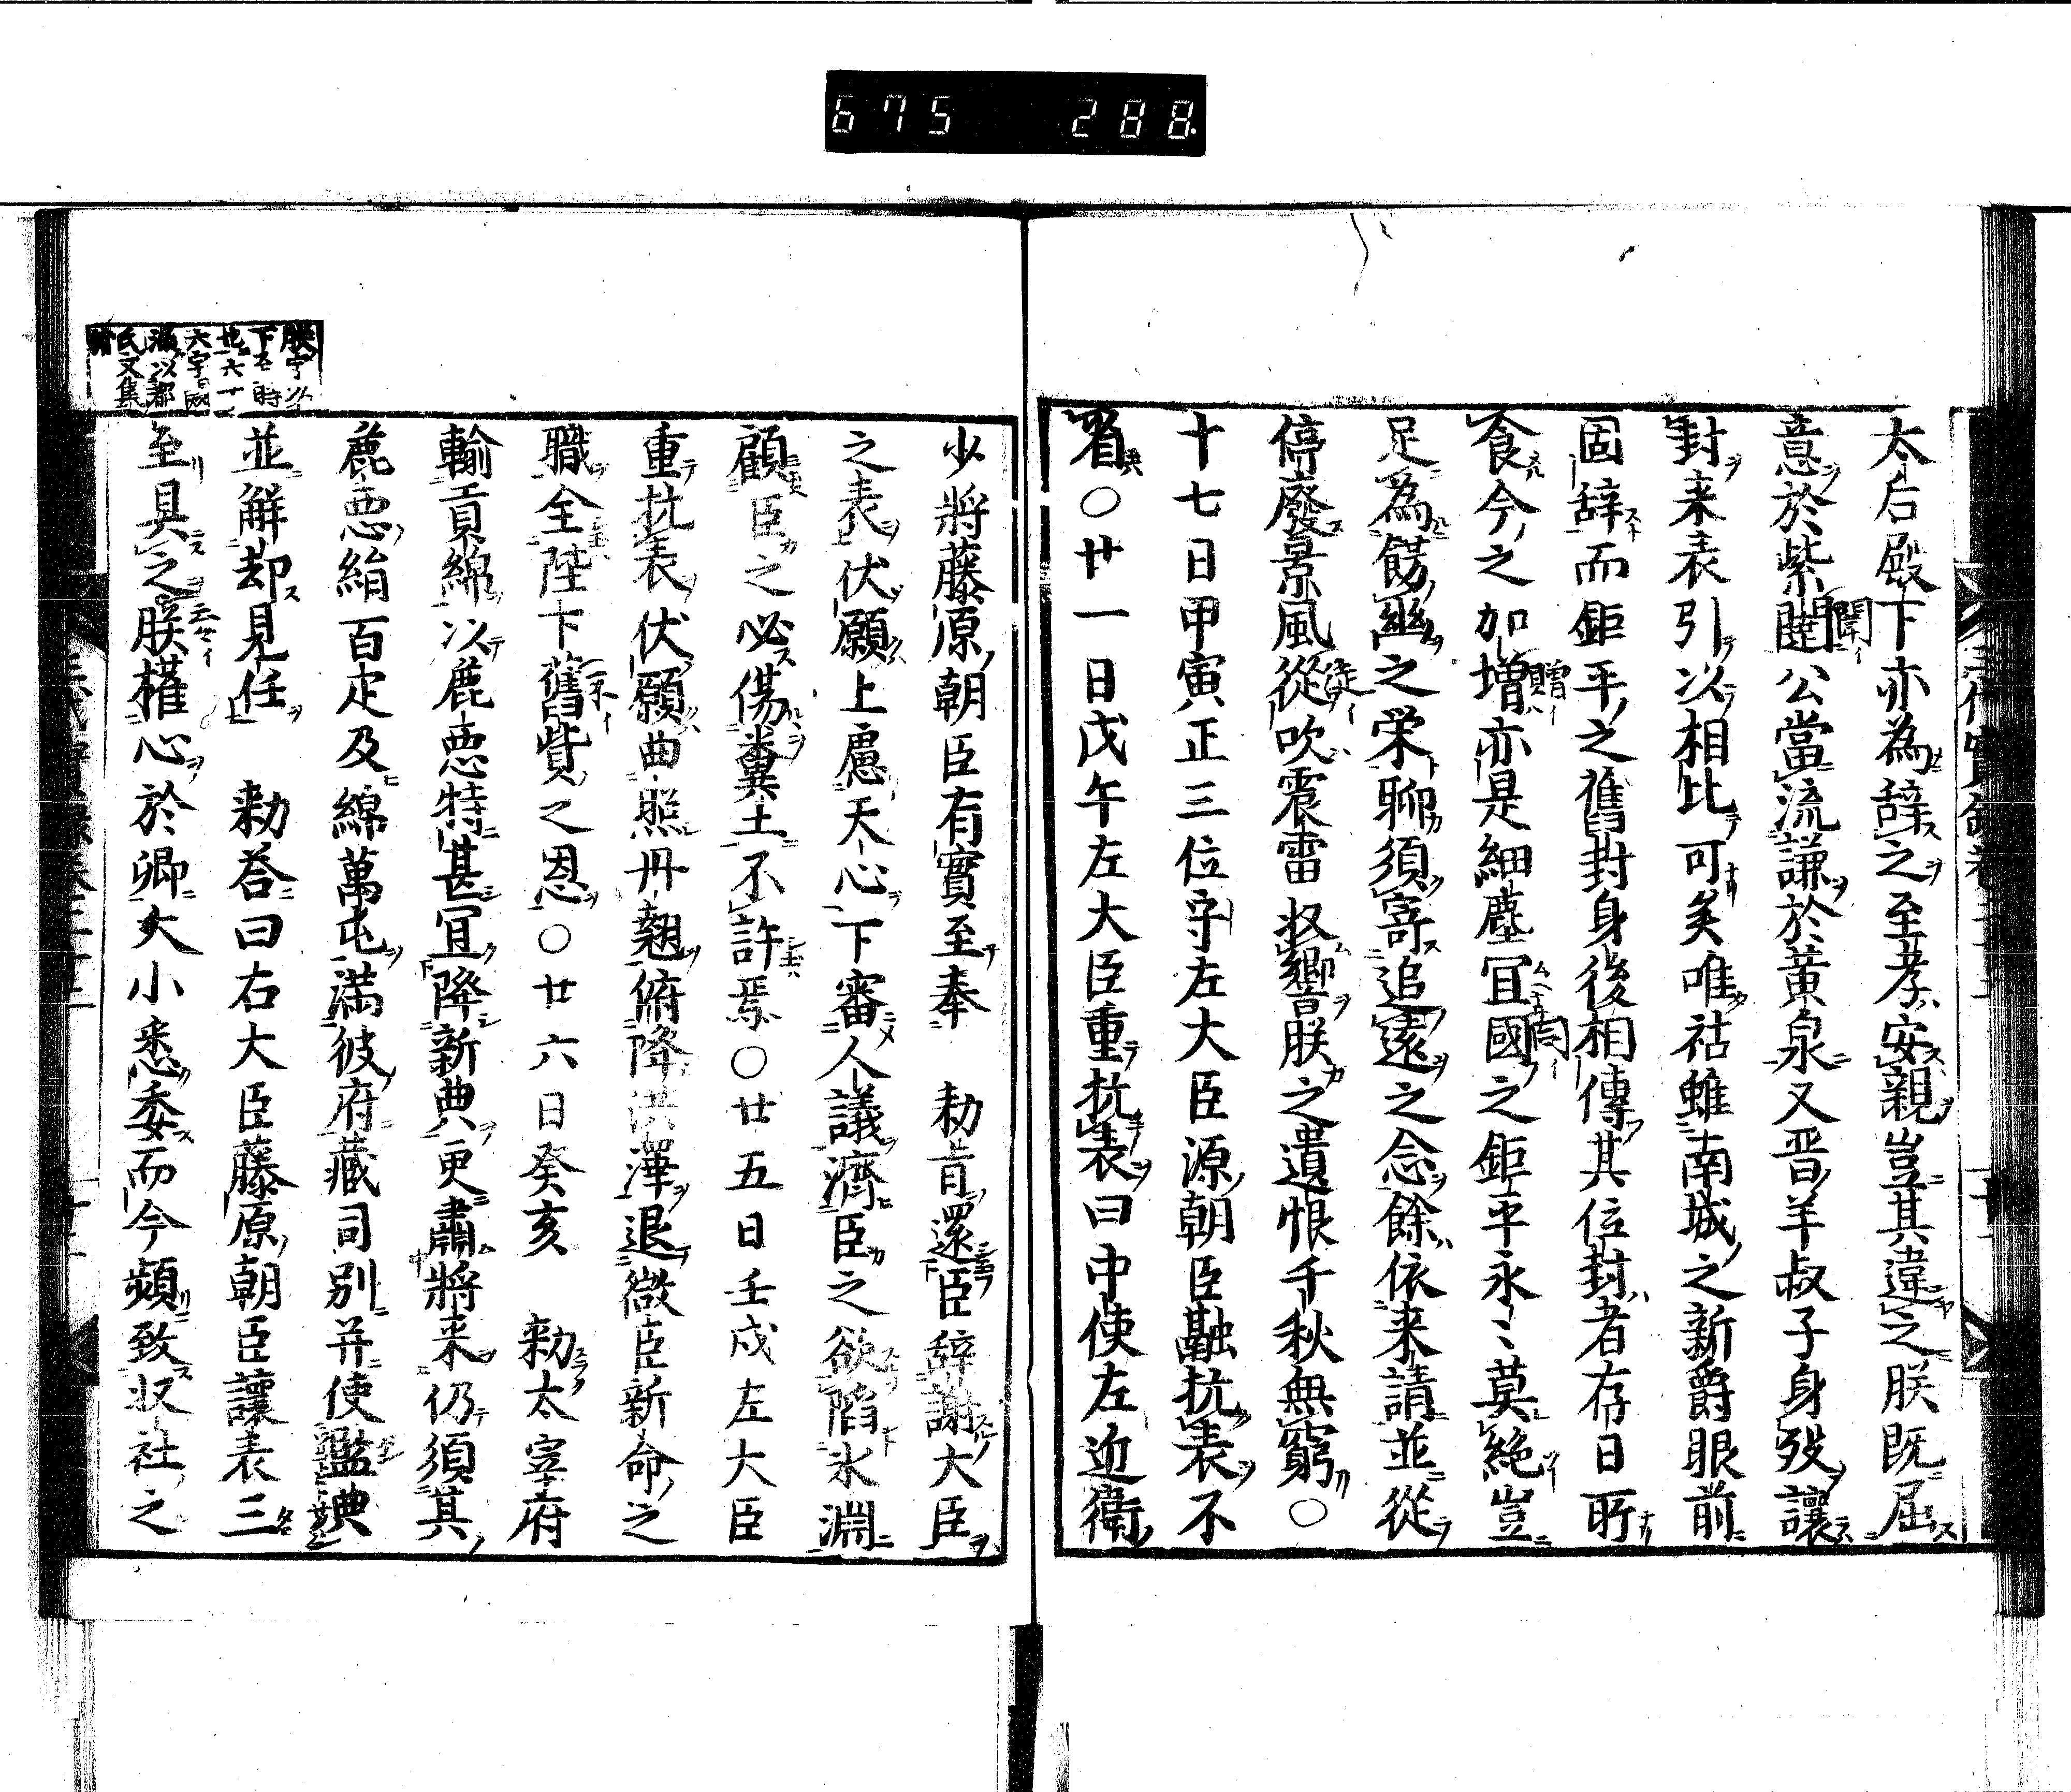 675 288.
太后殿下亦為辞之至孝安親豈其違之朕既屈
意於紫闥公當流謙於黄泉又晋羊叔子身歿讓
封来表引以相比可矣唯祜雖南城之新爵眼前
固辞而鉅平之舊封身後相傳其位封者存日所
食今之加増亦是細塵冝國之鉅平永〻莫絶豈
足為餝幽之栄聊須寄追遠之念餘依来請並從
停廢景風從吹震雷収響朕之遺恨千秋無窮○
十七日甲寅正三位守左大臣源朝臣融抗表不
省○廿一日戊午左大臣重抗表曰中使左近衛
少將藤原朝臣有實至奉 勅旨還臣辞謝大臣
之表伏願上慮天心下審人議濟臣之欲陷氷淵
顧臣之必傷糞土不許焉○廿五日壬戌左大臣
重抗表伏願曲照丹翹俯降洪澤退微臣新命之
職全陛下舊貲之恩○廿六日癸亥 勅太宰府
輸貢綿以麁悪特甚冝降新典更肅將来仍須其
麁悪絹百疋及綿萬屯満彼府藏司別并使監典
並解却見任 勅荅曰右大臣藤原朝臣讓表三
至具之朕權心於卿大小悉委而今頻致収社之
朕字以
下五時
也六十一
大字因
満以都
氏文集